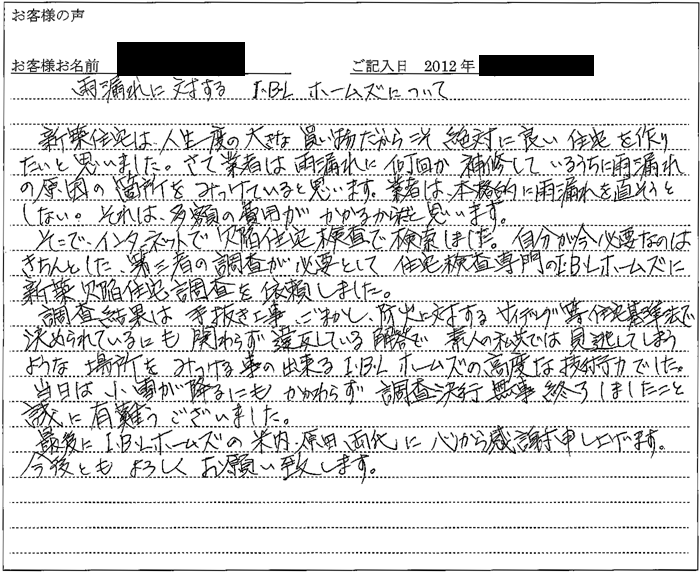 お客様の声
お客様お名前 ご記入日 2012年
雨漏れに対する I・B・Lホームズについて
新築住宅は、人生一度の大きな買い物だからこそ絶対に良い住宅を作り
たいと思いました。さて業者は雨漏れに何回か補修しているうちに雨漏れ
の原因の箇所をみつけていると思います。業者は、本格的に雨漏れを直そうと
しない。それは、多額の費用がかかるからだと思います。
そこで、インターネットで欠陥住宅検査で検索しました。自分が今必要なのは
きちんとした、第三者の調査が必要として住宅検査専門のI・B・Lホームズに
新築欠陥住宅調査を依頼しました。
調査結果は手抜き工事、ごまかし、防火に対するサイディング等住宅基準法で
決められているにも関わらず違反している解答で素人の私共では見逃してしまう
ような場所をみつける事の出来るI・B・Lホームズの高度な技術力でした。
当日は小雪が降るにもかかわらず調査決行無事終了しましたこと
誠に有難うございました。
最後にI・B・Lホームズの米内、原田両氏に心から感謝申し上げます。
今後ともよろしくお願い致します。